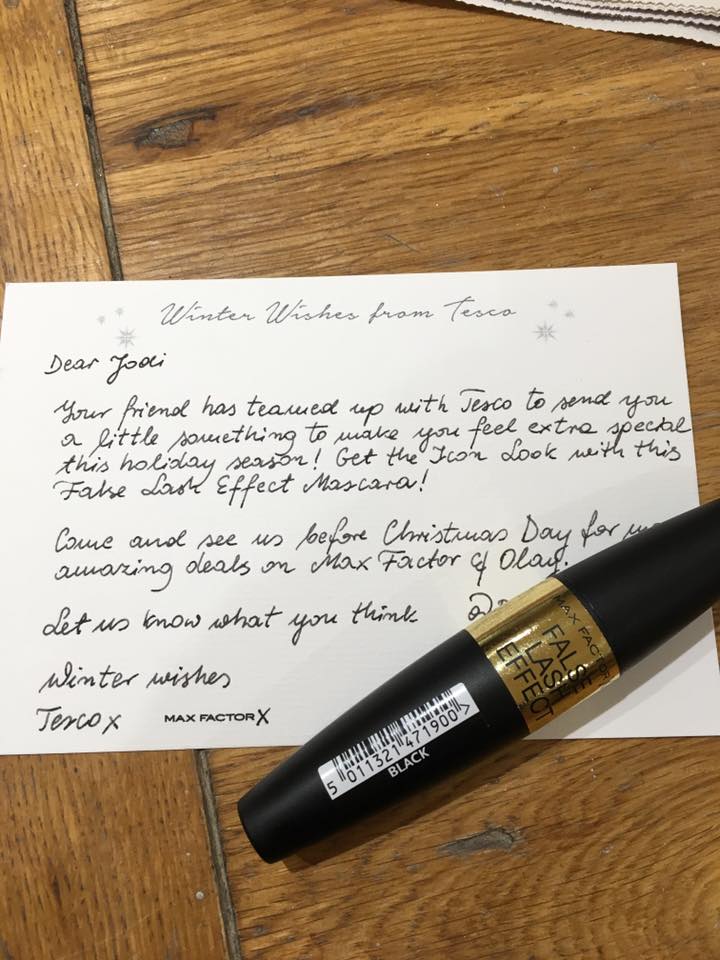 Winter Wishes from Tesco
Dear Jodi
Your friend has teamed up with Tesco to send you
a little something to make you feel extra special
this holiday season! Get the Icon Look with this
False Lash Effect Mascara!
Come and see us before Christmas Day for
amazing deals on Max Factor & Olay.
Let us know what you think
Winter wishes
Tesco x
MAX FACTOR X
MAX FACTOR
FALSE
LASH
EFFECT
5 011321 471900 >
BLACK